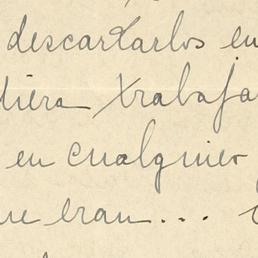 descartarlos en
diera trabaja
en cualquier
ue eran...